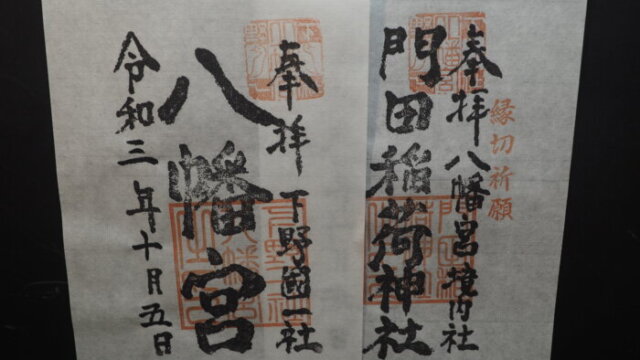 奉拝 八幡宮境内社
縁切祈願
門田稲荷神社
奉拝 下野國一社
八幡宮
令和三年十月五日